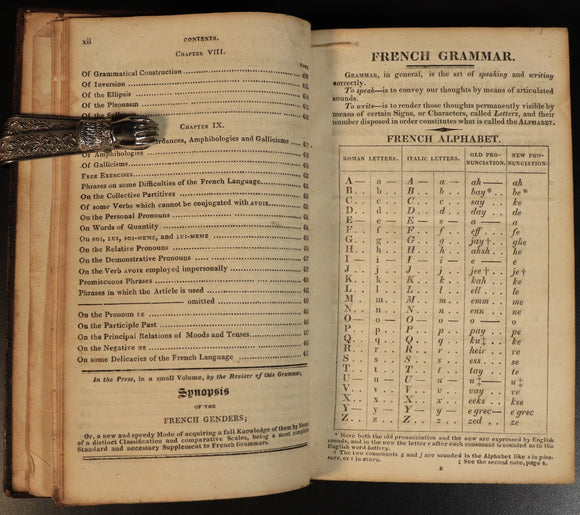 xii CONTENTS.
CHAPTER VIII.
PAGE
Of Grammatical Construction
Of Inversion
Of the Ellipsis
Of the Pleonasm
Of the
CHAPTER IX.
Amphibologies and Gallicisms
Of Amphibologies
Of Gallicisms
FREE EXERCISES.
Phrases on some Difficulties of the French Language.
On the Collective Partitives
Of some Verbs which cannot be conjugated with AVOIR.
On the Personal Pronouns
On Words of Quantity
On SOI, LUI, SOI-MEME, and LUI-MEME
On the Relative Pronouns
On the Demonstrative Pronouns
On the Verb AVOIR employed impersonally
Promiscuous Phrases
Phrases in which the Article is used
omitted
On the Pronoun LE
On the Participle Past
On the Principal Relations of Moods and Tenses
On the Negative NE
On some Delicacies of the French Language
In the Press, in a small Volume, by the Reviser of this Grammar,
Synopsis
OF THE
FRENCH GENDERS;
Or, a new and speedy Mode of acquiring a full Knowledge of them by Means
of a distinct Classification and comparative Scales, being a most complete
Standard and necessary Supplement to French Grammars.
FRENCH GRAMMAR.
GRAMMAR, in general, is the art of speaking and writing
correctly.
To speak—is to convey our thoughts by means of articulated
sounds.
To write—is to render those thoughts permanently visible by
means of certain Signs, or Characters, called Letters, and their
number disposed in order constitutes what is called the ALPHABET.
FRENCH ALPHABET.
ROMAN LETTERS. ITALIC LETTERS. OLD PRO- NEW PRO-
NUNCIATION. NUNCIATION.
A — a A — a — ah — ah
B . . b B . . b . . bay* . . be*
C . . c C . . c . . say . . ke
D . . d D . . d . . day . . de
E — e E — e — a — a
F . . f F . . f . . eff . . fe
G . . g G . . g . . jay† . . ghe
H . . h H . . h . . ahsh . . he
I — i I — i — e — e
J . . j J . . j . . jee† . . je†
K . . k K . . k . . kah . . ke
L . . l L . . l . . ell . . le
M . . m M . . m . . emm . . me
N . . n N . . n . . enn . . ne
O — o O — o — o — o
P . . p P . . p . . pay . . pe
Q . . q Q . . q . . ku‡ . . ke
R . . r R . . r . . heir . . re
S . . s S . . s . . ess . . se
T . . t T . . t . . tay . . te
U — u U — u — u‡ — u‡
V . . v V . . v . . vay . . ve
X . . x X . . x . . eeks . . kse
Y — y Y — y — e grec — e grec
Z . . z Z . . z . . zed . . ze
* Here both the old pronunciation and the new are expressed by English
sounds, and in the new the letter e after each consonant is sounded as in the
English word battery.
† The two consonants g and j are sounded in the Alphabet like s in plea-
sure, or z in azure. ‡ See the second note, page 4.
B